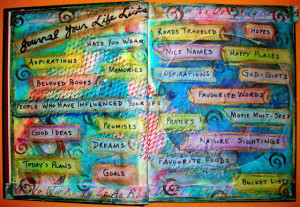 Journal Your Life Lists
Hats You Wear
Aspirations
Memories
Beloved Books
People Who Have Influenced Your Life
Good Ideas
Promises
Dreams
Today's Plans
Goals
Roads Traveled
Hopes
Nice Names
Happy Places
Inspirations
God-Gifts
Favourite Words
Movie Must-Sees
Prayers
Nature Sightings
Favourite Foods
Bucket List